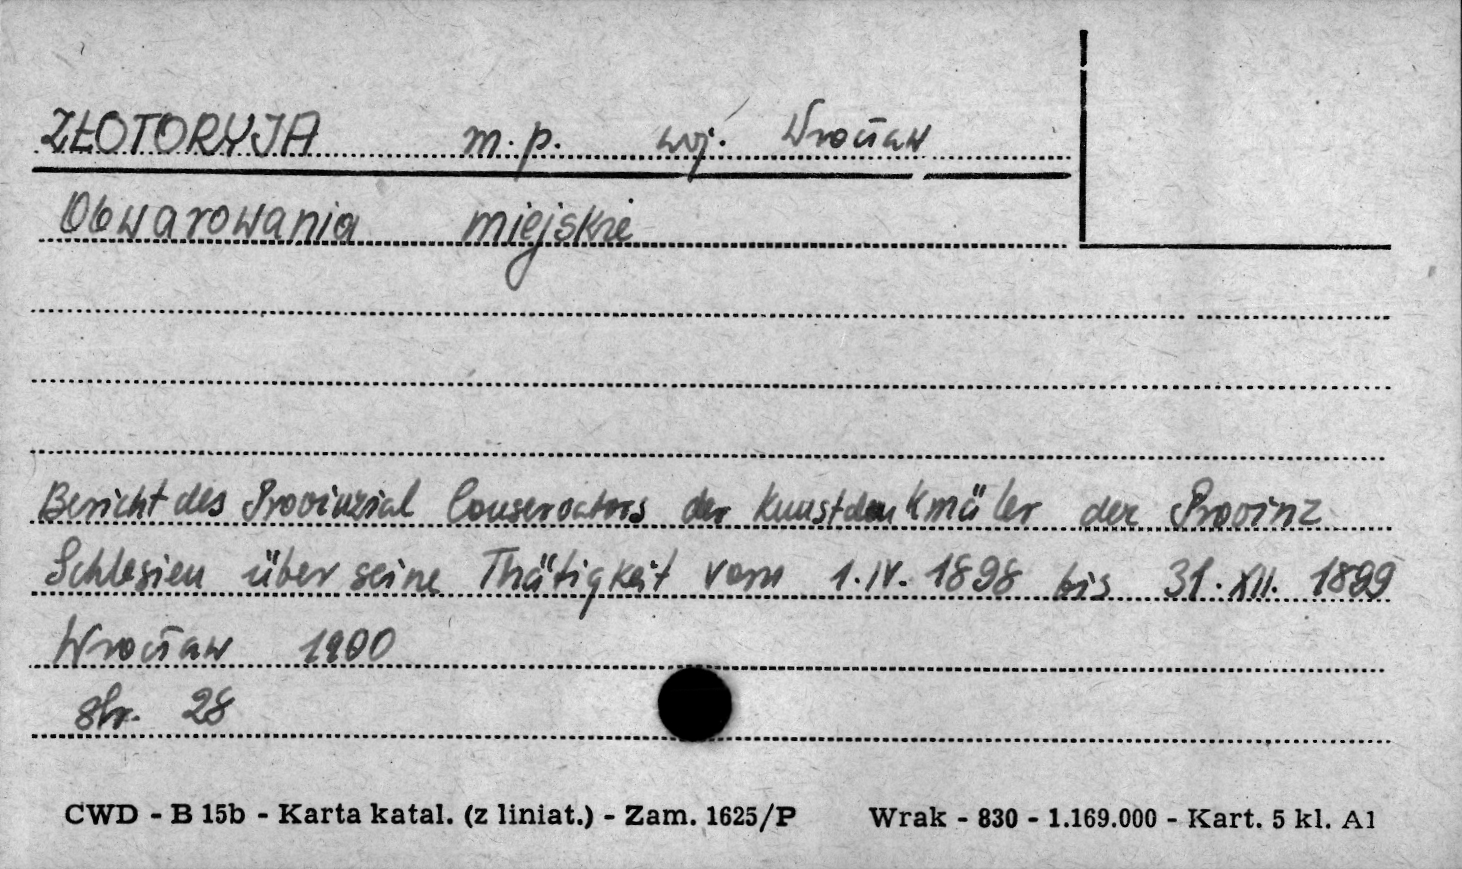 ZŁOTORYJA m.p. woj. Wrocław
Obwarowania miejskie
Bericht des Provinzial Conservators der Kunstdenkmäler der Provinz
Schlesien über seine Thätigkeit vom 1.IV. 1898 bis 31.XII. 1899
Wrocław 1900
str. 28
CWD - B 15b - Karta katal. (z liniat.) - Zam. 1625/P Wrak - 830 - 1.169.000 - Kart. 5 kl. A1